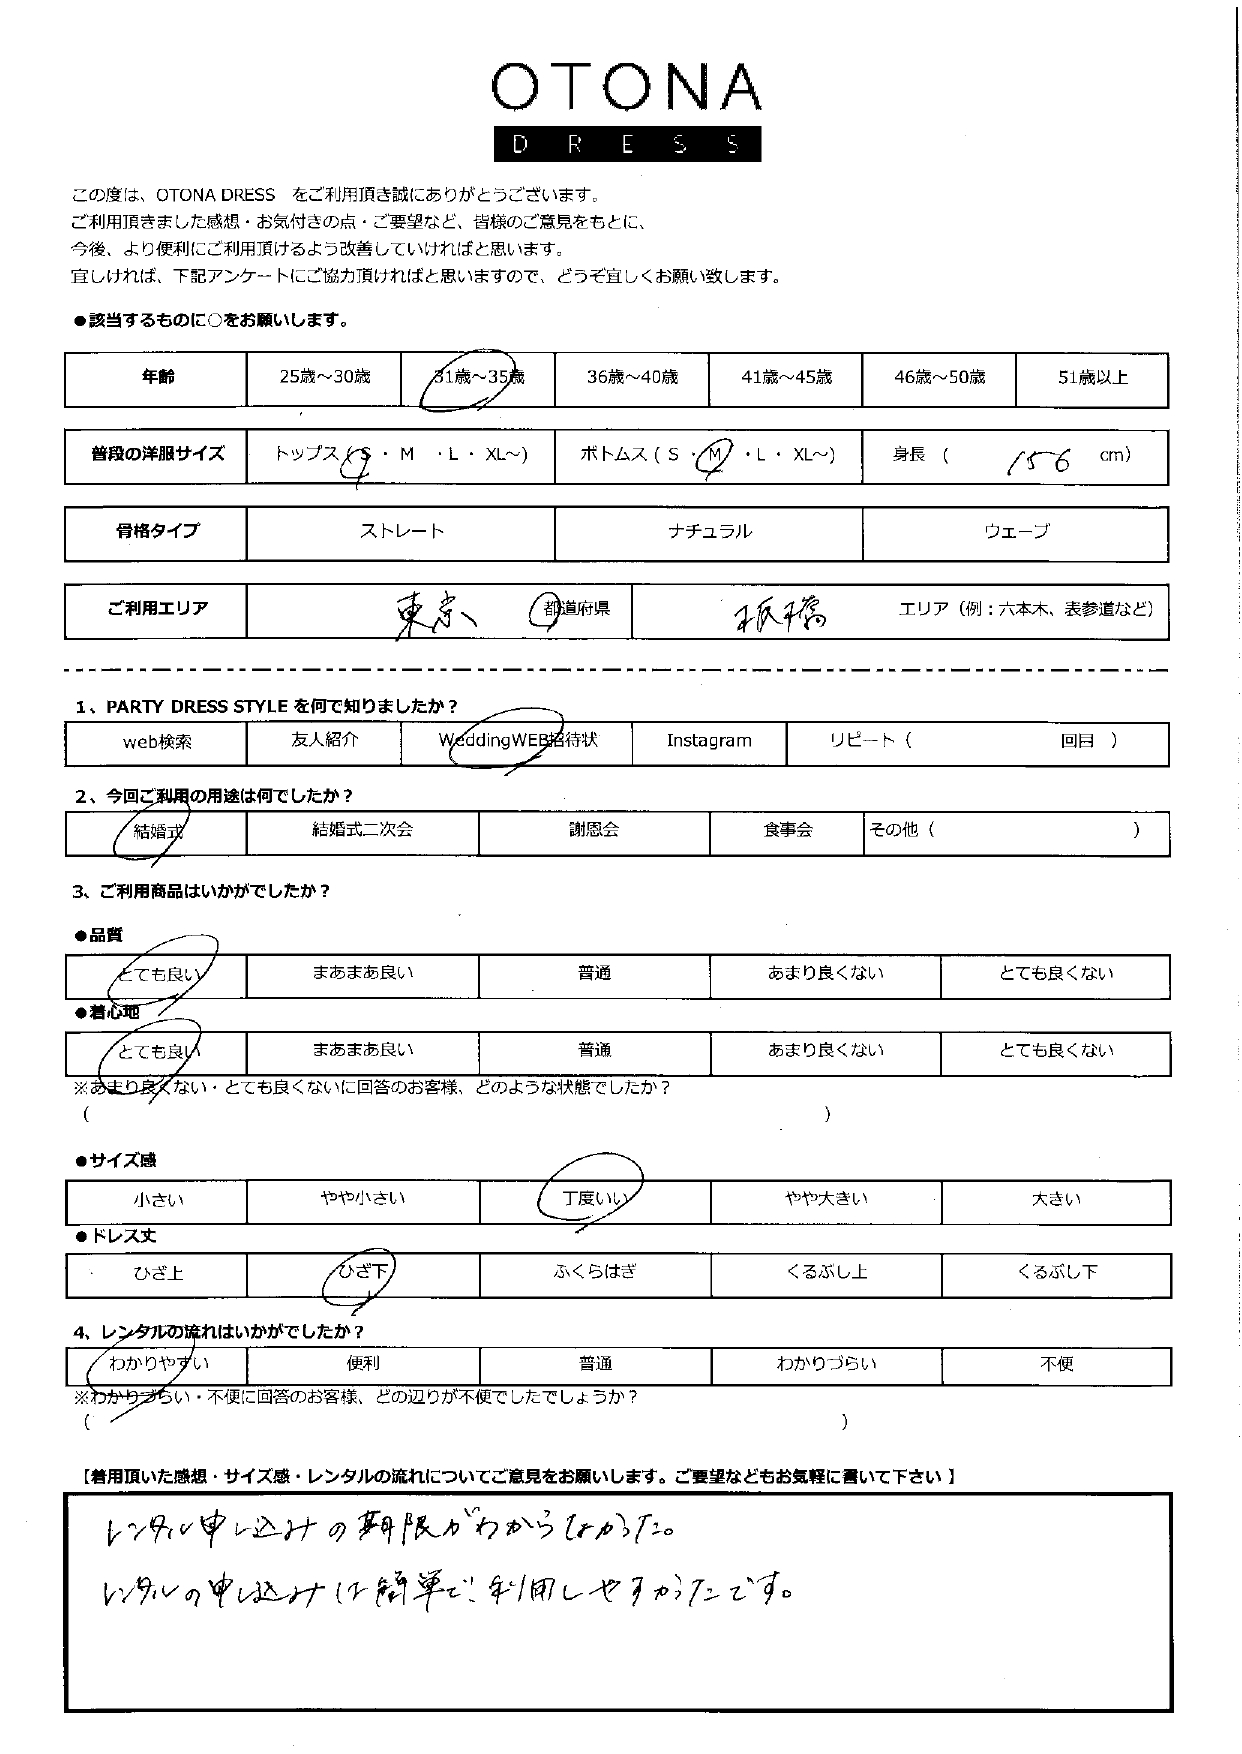 OTONA
DRESS
この度は、OTONA DRESS をご利用頂き誠にありがとうございます。
ご利用頂きました感想・お気付きの点・ご要望など、皆様のご意見をもとに、
今後、より便利にご利用頂けるよう改善していければと思います。
宜しければ、下記アンケートにご協力頂ければと思いますので、どうぞ宜しくお願い致します。
●該当するものに○をお願いします。
年齢 25歳～30歳 31歳～35歳 36歳～40歳 41歳～45歳 46歳～50歳 51歳以上
普段の洋服サイズ トップス(S・M・L・XL～) ボトムス(S・M・L・XL～) 身長 ( 156 cm)
骨格タイプ ストレート ナチュラル ウェーブ
ご利用エリア 東京 都道府県 板橋 エリア（例：六本木、表参道など）
1、PARTY DRESS STYLE を何で知りましたか？
web検索 友人紹介 WeddingWEB招待状 Instagram リピート（ 回目 ）
2、今回ご利用の用途は何でしたか？
結婚式 結婚式二次会 謝恩会 食事会 その他（ ）
3、ご利用商品はいかがでしたか？
●品質
とても良い まあまあ良い 普通 あまり良くない とても良くない
●着心地
とても良い まあまあ良い 普通 あまり良くない とても良くない
※あまり良くない・とても良くないに回答のお客様、どのような状態でしたか？
( )
●サイズ感
小さい やや小さい 丁度いい やや大きい 大きい
●ドレス丈
ひざ上 ひざ下 ふくらはぎ くるぶし上 くるぶし下
4、レンタルの流れはいかがでしたか？
わかりやすい 便利 普通 わかりづらい 不便
※わかりづらい・不便に回答のお客様、どの辺りが不便でしたでしょうか？
( )
【着用頂いた感想・サイズ感・レンタルの流れについてご意見をお願いします。ご要望などもお気軽に書いて下さい】
レンタル申し込みの期限がわからなかった。
レンタルの申し込みは簡単で利用しやすかったです。